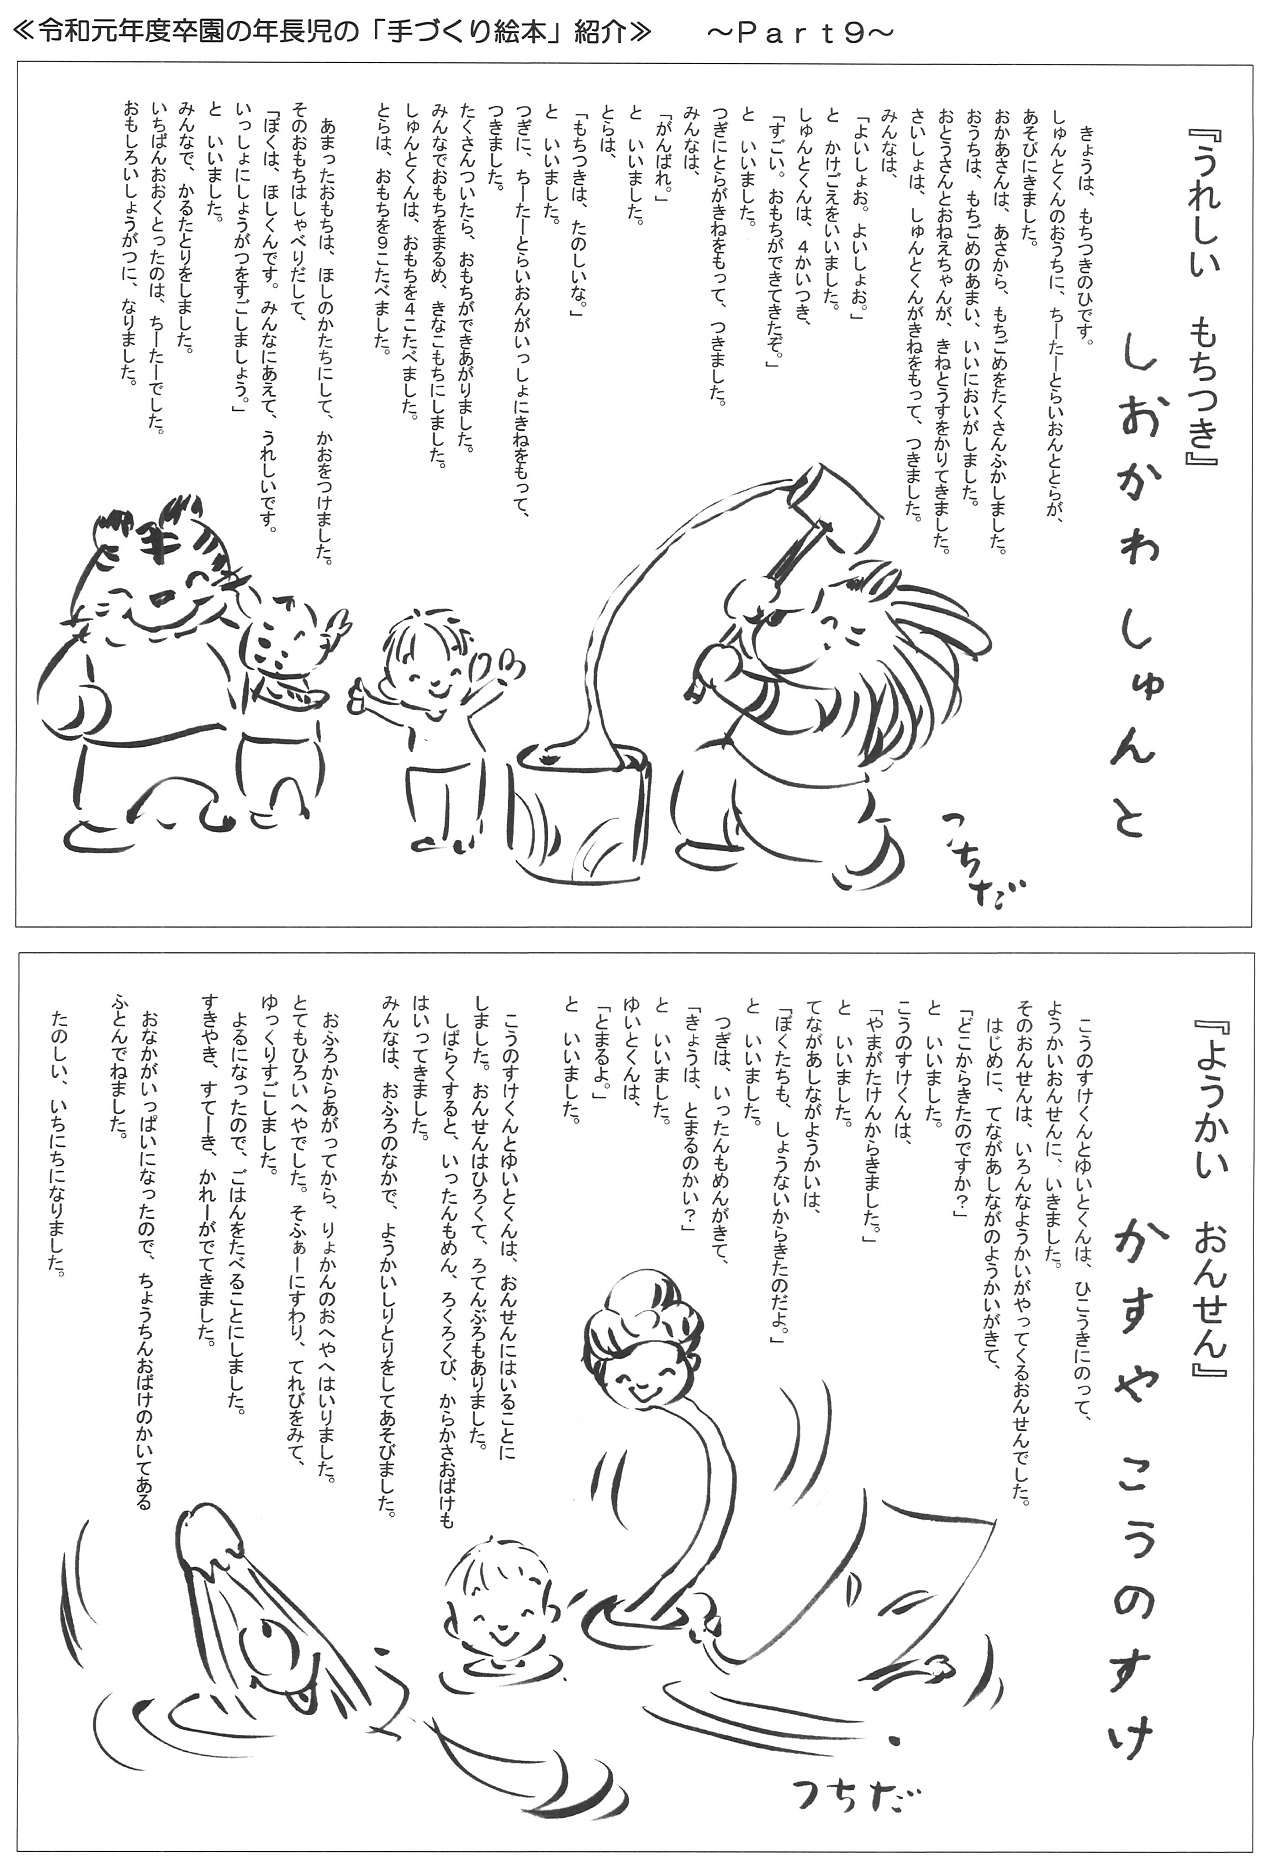 ≪令和元年度卒園の年長児の「手づくり絵本」紹介≫　～Part９～
『うれしい　もちつき』
しおかわ しゅんと
きょうは、もちつきのひです。
しゅんとくんのおうちに、ちーたーとらいおんととらが、
あそびにきました。
おかあさんは、あさから、もちごめをたくさんふかしました。
おうちは、もちごめのあまい、いいにおいがしました。
おとうさんとおねえちゃんが、きねとうすをかりてきました。
さいしょは、しゅんとくんがきねをもって、つきました。
みんなは、
「よいしょお。よいしょお。」
と　かけごえをいいました。
しゅんとくんは、４かいつき、
「すごい。おもちができてきたぞ。」
と　いいました。
つぎにとらがきねをもって、つきました。
みんなは、
「がんばれ。」
と　いいました。
とらは、
「もちつきは、たのしいな。」
と　いいました。
つぎに、ちーたーとらいおんがいっしょにきねをもって、
つきました。
たくさんついたら、おもちができあがりました。
みんなでおもちをまるめ、きなこもちにしました。
しゅんとくんは、おもちを４こたべました。
とらは、おもちを９こたべました。
あまったおもちは、ほしのかたちにして、かおをつけました。
そのおもちはしゃべりだして、
「ぼくは、ほしくんです。みんなにあえて、うれしいです。
いっしょにしょうがつをすごしましょう。」
と　いいました。
みんなで、かるたとりをしました。
いちばんおおくとったのは、ちーたーでした。
おもしろいしょうがつに、なりました。
つちだ
『ようかい　おんせん』
かすや こうのすけ
こうのすけくんとゆいとくんは、ひこうきにのって、
ようかいおんせんに、いきました。
そのおんせんは、いろんなようかいがやってくるおんせんでした。
はじめに、てながあしながのようかいがきて、
「どこからきたのですか？」
と　いいました。
こうのすけくんは、
「やまがたけんからきました。」
と　いいました。
てながあしながようかいは、
「ぼくたちも、しょうないからきたのだよ。」
と　いいました。
つぎは、いったんもめんがきて、
「きょうは、とまるのかい？」
と　いいました。
ゆいとくんは、
「とまるよ。」
と　いいました。
こうのすけくんとゆいとくんは、おんせんにはいることに
しました。おんせんはひろくて、ろてんぶろもありました。
しばらくすると、いったんもめん、ろくろくび、からかさおばけも
はいってきました。
みんなは、おふろのなかで、ようかいしりとりをしてあそびました。
おふろからあがってから、りょかんのおへやへはいりました。
とてもひろいへやでした。そふぁーにすわり、てれびをみて、
ゆっくりすごしました。
よるになったので、ごはんをたべることにしました。
すきやき、すてーき、かれーがでてきました。
おなかがいっぱいになったので、ちょうちんおばけのかいてある
ふとんでねました。
たのしい、いちにちになりました。
つちだ